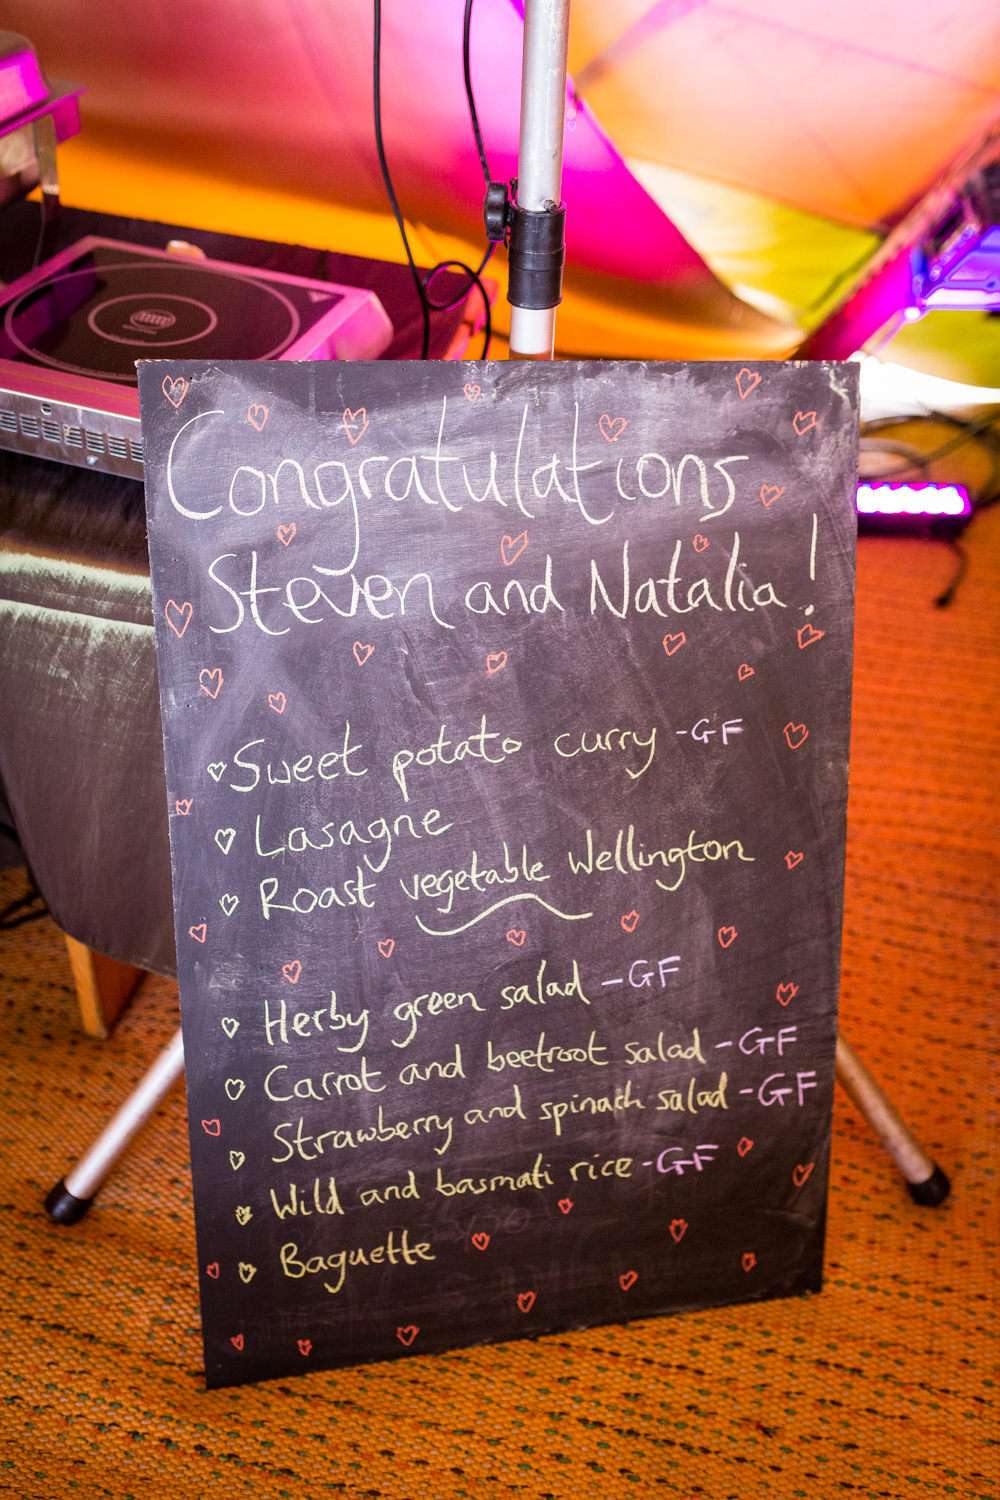 Congratulations
Steven and Natalia!
Sweet potato curry -GF
Lasagne
Roast vegetable Wellington
Herby green salad -GF
Carrot and beetroot salad -GF
Strawberry and spinach salad -GF
Wild and basmati rice -GF
Baguette